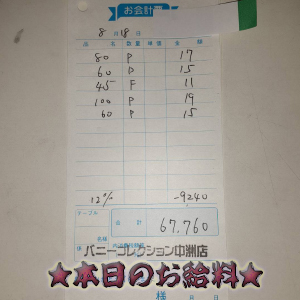 お会計票
8月18日
品名 数量 単価 金額
80 P 17
60 P 15
45 F 11
100 P 19
60 P 15
12% -9240
テーブル
合計 67,760
バニーコレクション中洲店
★本日のお給料★
様